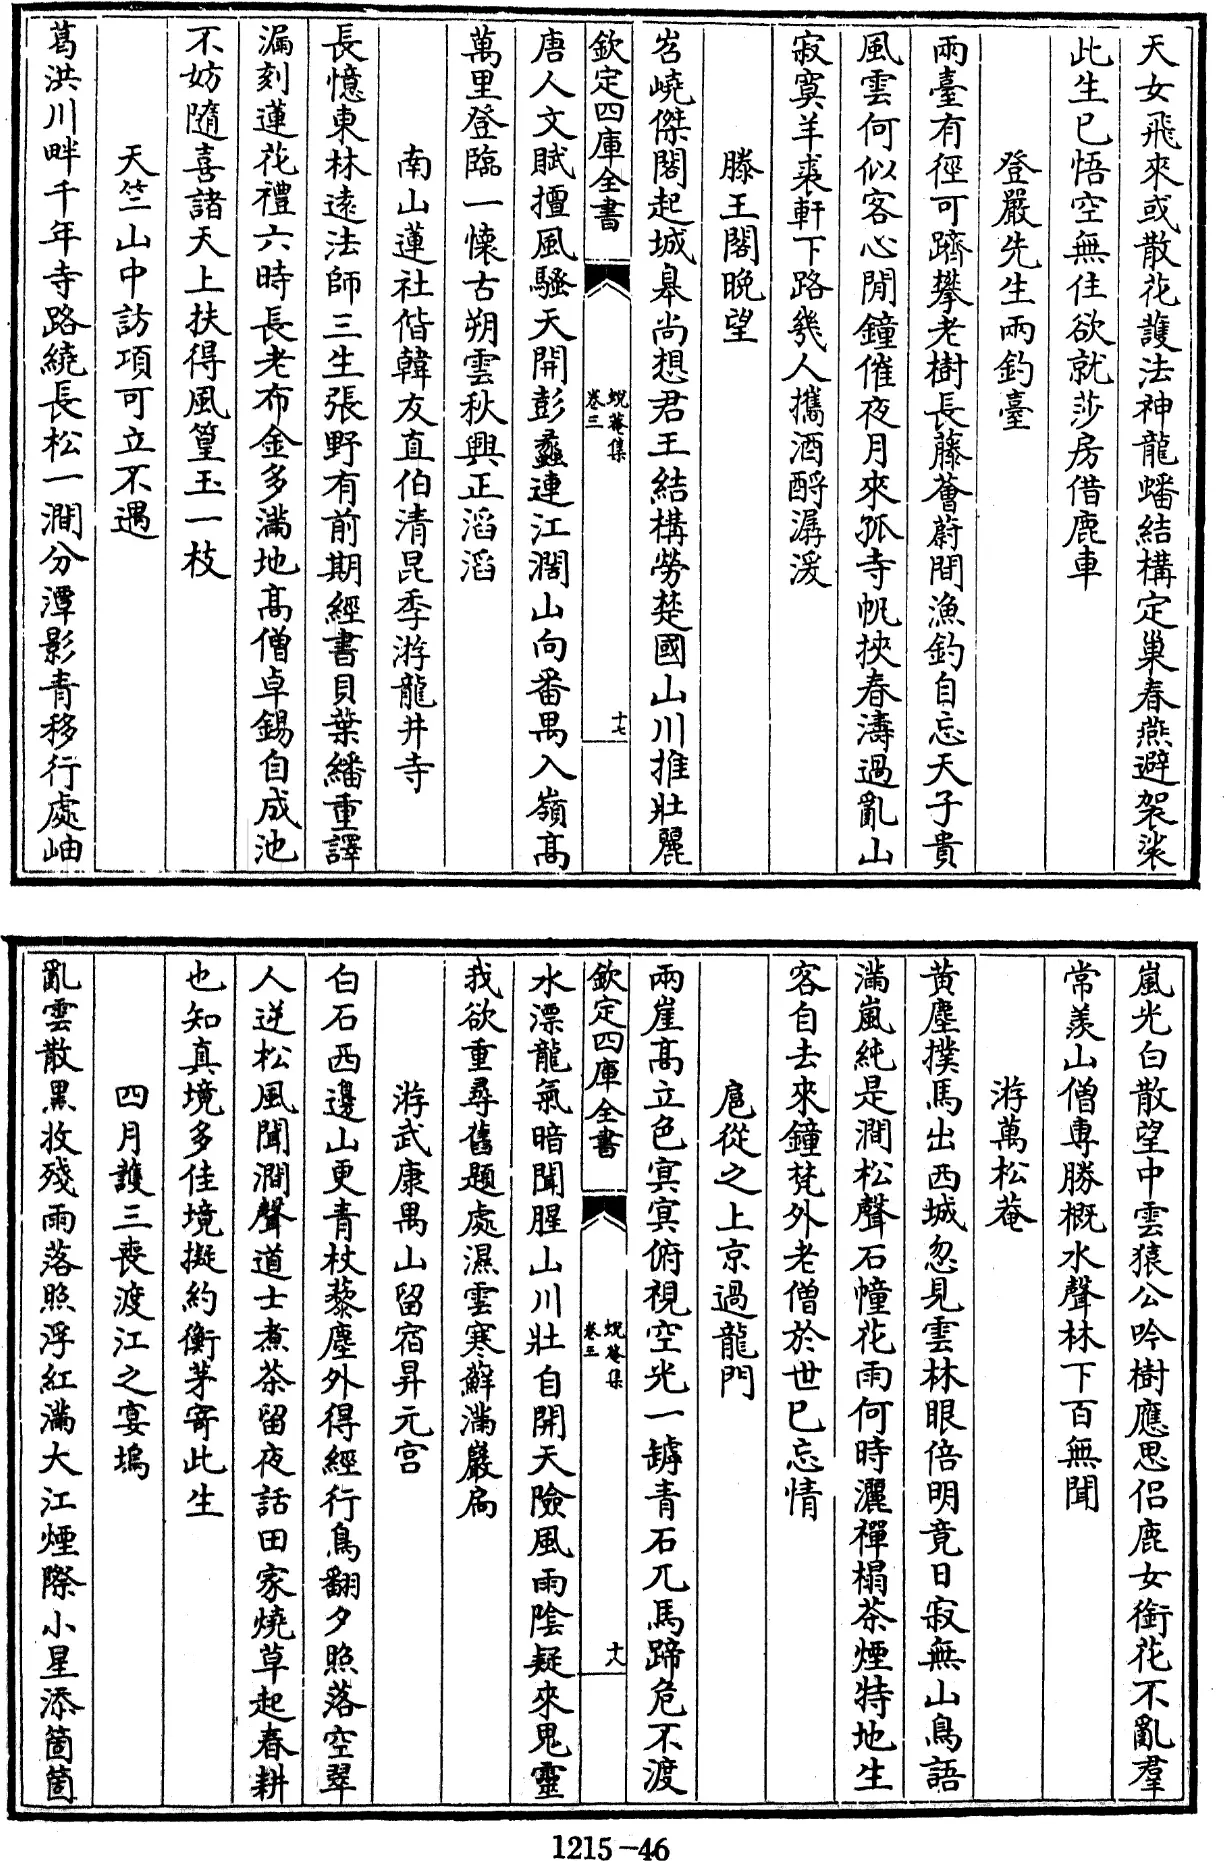 天女飛來或散花護法神龍蟠結構定巢春燕避袈裟
此生已悟空無住欲就莎房借鹿車
登嚴先生兩釣臺
兩臺有徑可躋攀老樹長藤薈蔚間漁釣自忘天子貴
風雲何似客心閒鐘催夜月來孤寺帆挾春濤過亂山
寂寞羊裘軒下路幾人攜酒酹潺湲
滕王閣晚望
岧嶢傑閣起城皋尚想君王結構勞楚國山川推壯麗
欽定四庫全書
蛻菴集
卷三
十七
唐人文賦擅風騷天開彭蠡連江濶山向番禺入嶺高
萬里登臨一懷古朔雲秋興正滔滔
南山蓮社偕韓友直伯清昆季游龍井寺
長憶東林遠法師三生張野有前期經書貝葉繙重譯
漏刻蓮花禮六時長老布金多滿地高僧卓錫自成池
不妨隨喜諸天上扶得風篁玉一枝
天竺山中訪項可立不遇
葛洪川畔千年寺路繞長松一澗分潭影青移行處岫
嵐光白散望中雲猿公吟樹應思侣鹿女銜花不亂羣
常羨山僧専勝概水聲林下百無聞
游萬松菴
黄塵撲馬出西城忽見雲林眼倍明竟日寂無山鳥語
滿嵐純是澗松聲石幢花雨何時灑禪榻茶煙特地生
客自去來鐘梵外老僧於世已忘情
扈從之上京過龍門
兩崖高立色冥冥俯視空光一罅青石兀馬蹄危不渡
欽定四庫全書
蛻菴集
卷三
十八
水漂龍氣暗聞腥山川壯自開天險風雨陰疑來鬼靈
我欲重尋舊題處濕雲寒蘚滿巖扃
游武康禺山留宿昇元宫
白石西邊山更青杖藜塵外得經行鳥翻夕照落空翠
人逆松風聞澗聲道士煮茶留夜話田家燒草起春耕
也知真境多佳境擬約衡茅寄此生
四月護三喪渡江之宴塢
亂雲散黑收殘雨落照浮紅滿大江煙際小星添箇箇
1215-46